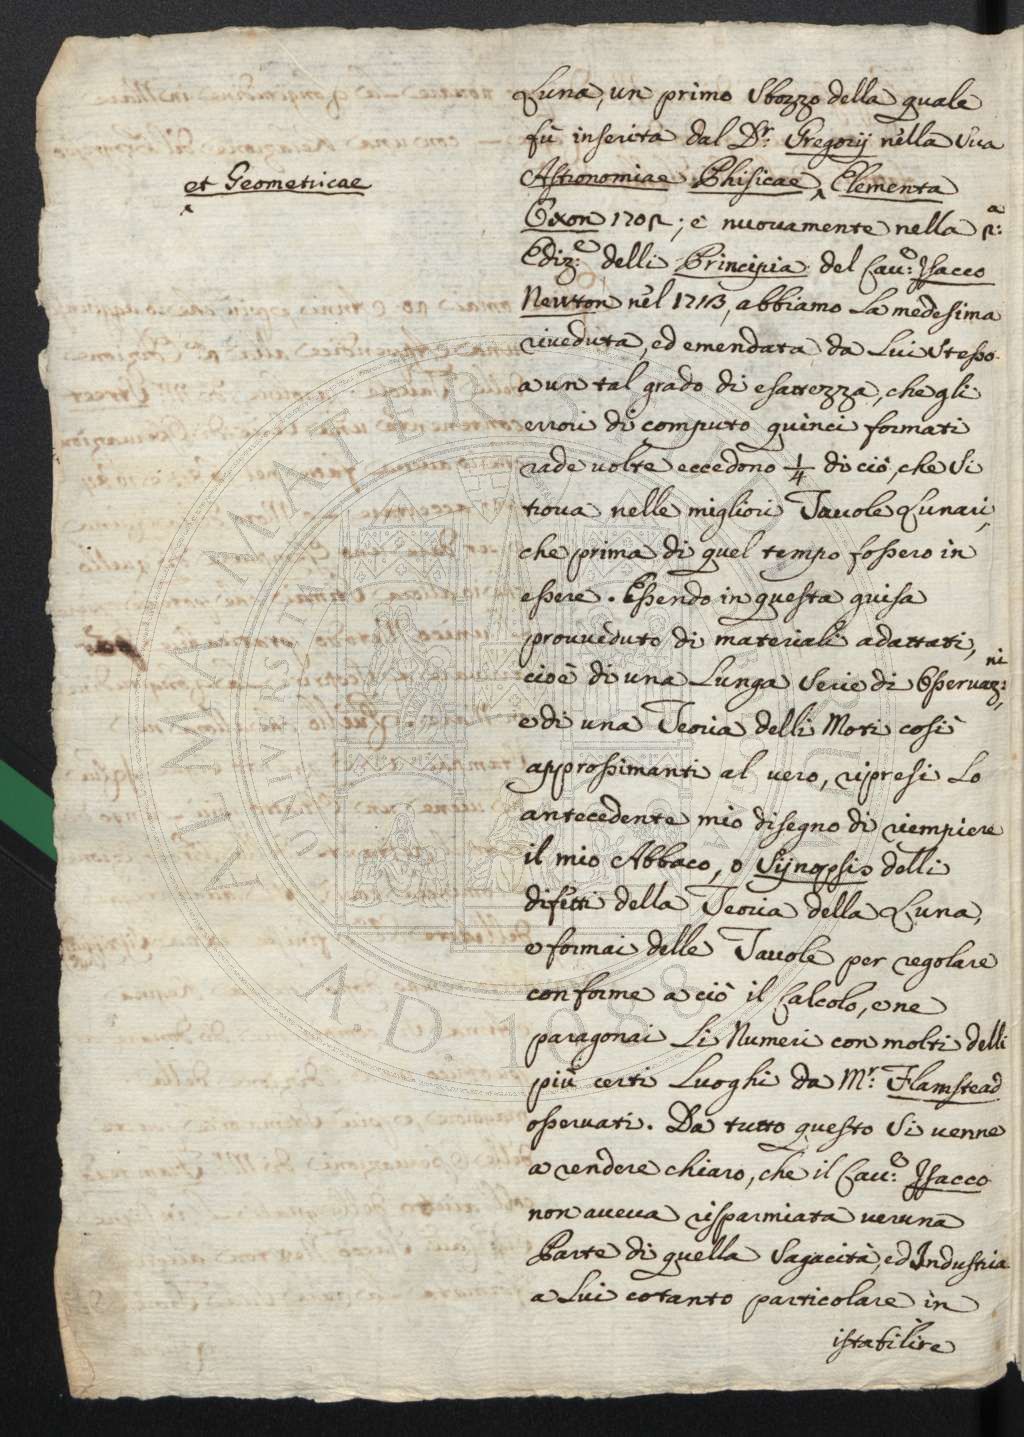 Luna, un primo sbozzo della quale
fù inserita dal Dr. Gregorÿ nella sua
et Geometricae
Astronomiae Phisicae ‸ Elementa
Oxon 1702; e nuovamente nella 2:a
Ediz:e delli Principia del Cau:o Isacco
Newton nel 1713, abbiamo la medesima
riveduta, ed emendata da Lui stesso
a un tal grado di esattezza, che gli
errori di computo quinci formati
rade volte eccedono 1/4 di ciò, che si
trova nelle migliori Tavole Lunari,
che prima di quel tempo fossero in
essere. Essendo in questa guisa
provveduto di materiali adattati,
cioè di una Lunga serie di Osservaz:ni,
e di una Teoria delli Moti così
approssimanti al vero, ripresi lo
antecedente mio disegno di riempiere
il mio Abbaco, o Sÿnopsis delli
difetti della Teoria della Luna,
e formai delle Tavole per regolare
conforme a ciò il Calcolo, e ne
paragonai li Numeri con molti delli
più certi Luoghi da Mr: Flamstead
osservati. Da tutto questo si venne
a rendere chiaro, che il Cau:o Isacco
non aveva risparmiata veruna
Parte di quella sagacità, ed Industria
a Lui cotanto particolare in
istabilire
ALMA MATER STUDIORUM
UNIVERSITÀ DI BOLOGNA
A.D. 1088